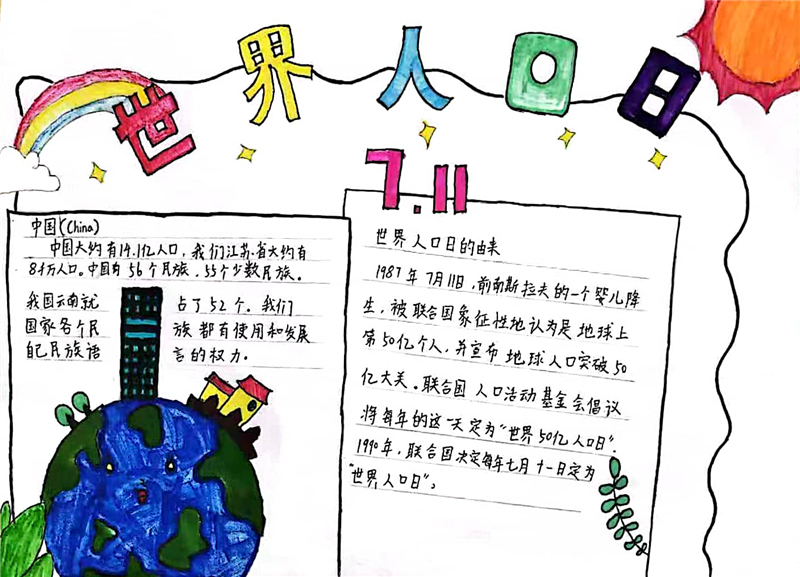 世界人口日
7.11
中国(China)
中国大约有14.1亿人口,我们江苏省大约有
84万人口。中国有56个民族,55个少数民族。
我国云南就占了52个。我们
国家各个民族都有使用和发展
自己民族语言的权力。
世界人口日的由来
1987年7月11日,前南斯拉夫的一个婴儿降
生,被联合国象征性地认为是地球上
第50亿个人,并宣布地球人口突破50
亿大关。联合国人口活动基金会倡议
将每年的这一天定为"世界50亿人口日".
1990年,联合国决定每年七月十一日定为
"世界人口日"。